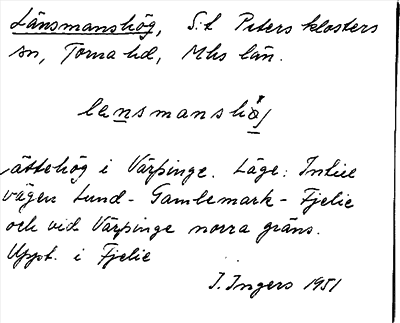 Länsmanshög, S:t Peters klosters
sn, Torna hd, Mhs län.
lensmanshö̱j
ättehög i Värpinge. Läge: Intill
vägen Lund - Gamlemark - Fjelie
och vid Värpinge norra gräns.
Uppt. i Fjelie
I. Ingers 1951